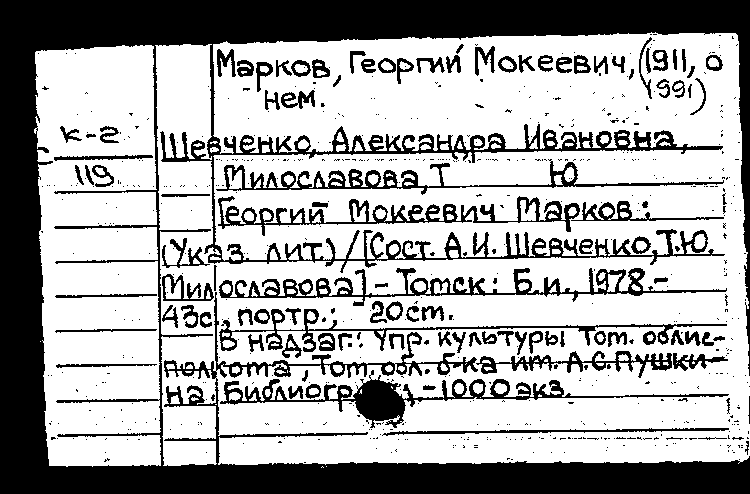 Марков, Георгий Мокеевич, (1911, о
1991)
нем.
к-г
Шевченко, Александра Ивановна,
119
Милославова, Т Ю
Георгий Мокеевич Марков:
(Указ. лит.) / [Сост. А.И. Шевченко, Т.Ю.
Милославова]. - Томск: Б.и., 1978.-
43с., портр.; 20cm.
В надзаг.: Упр. культуры Том. облис-
полкома, Том. обл. б-ка им. А.С.Пушки-
на. Библиогр. -1000 экз.